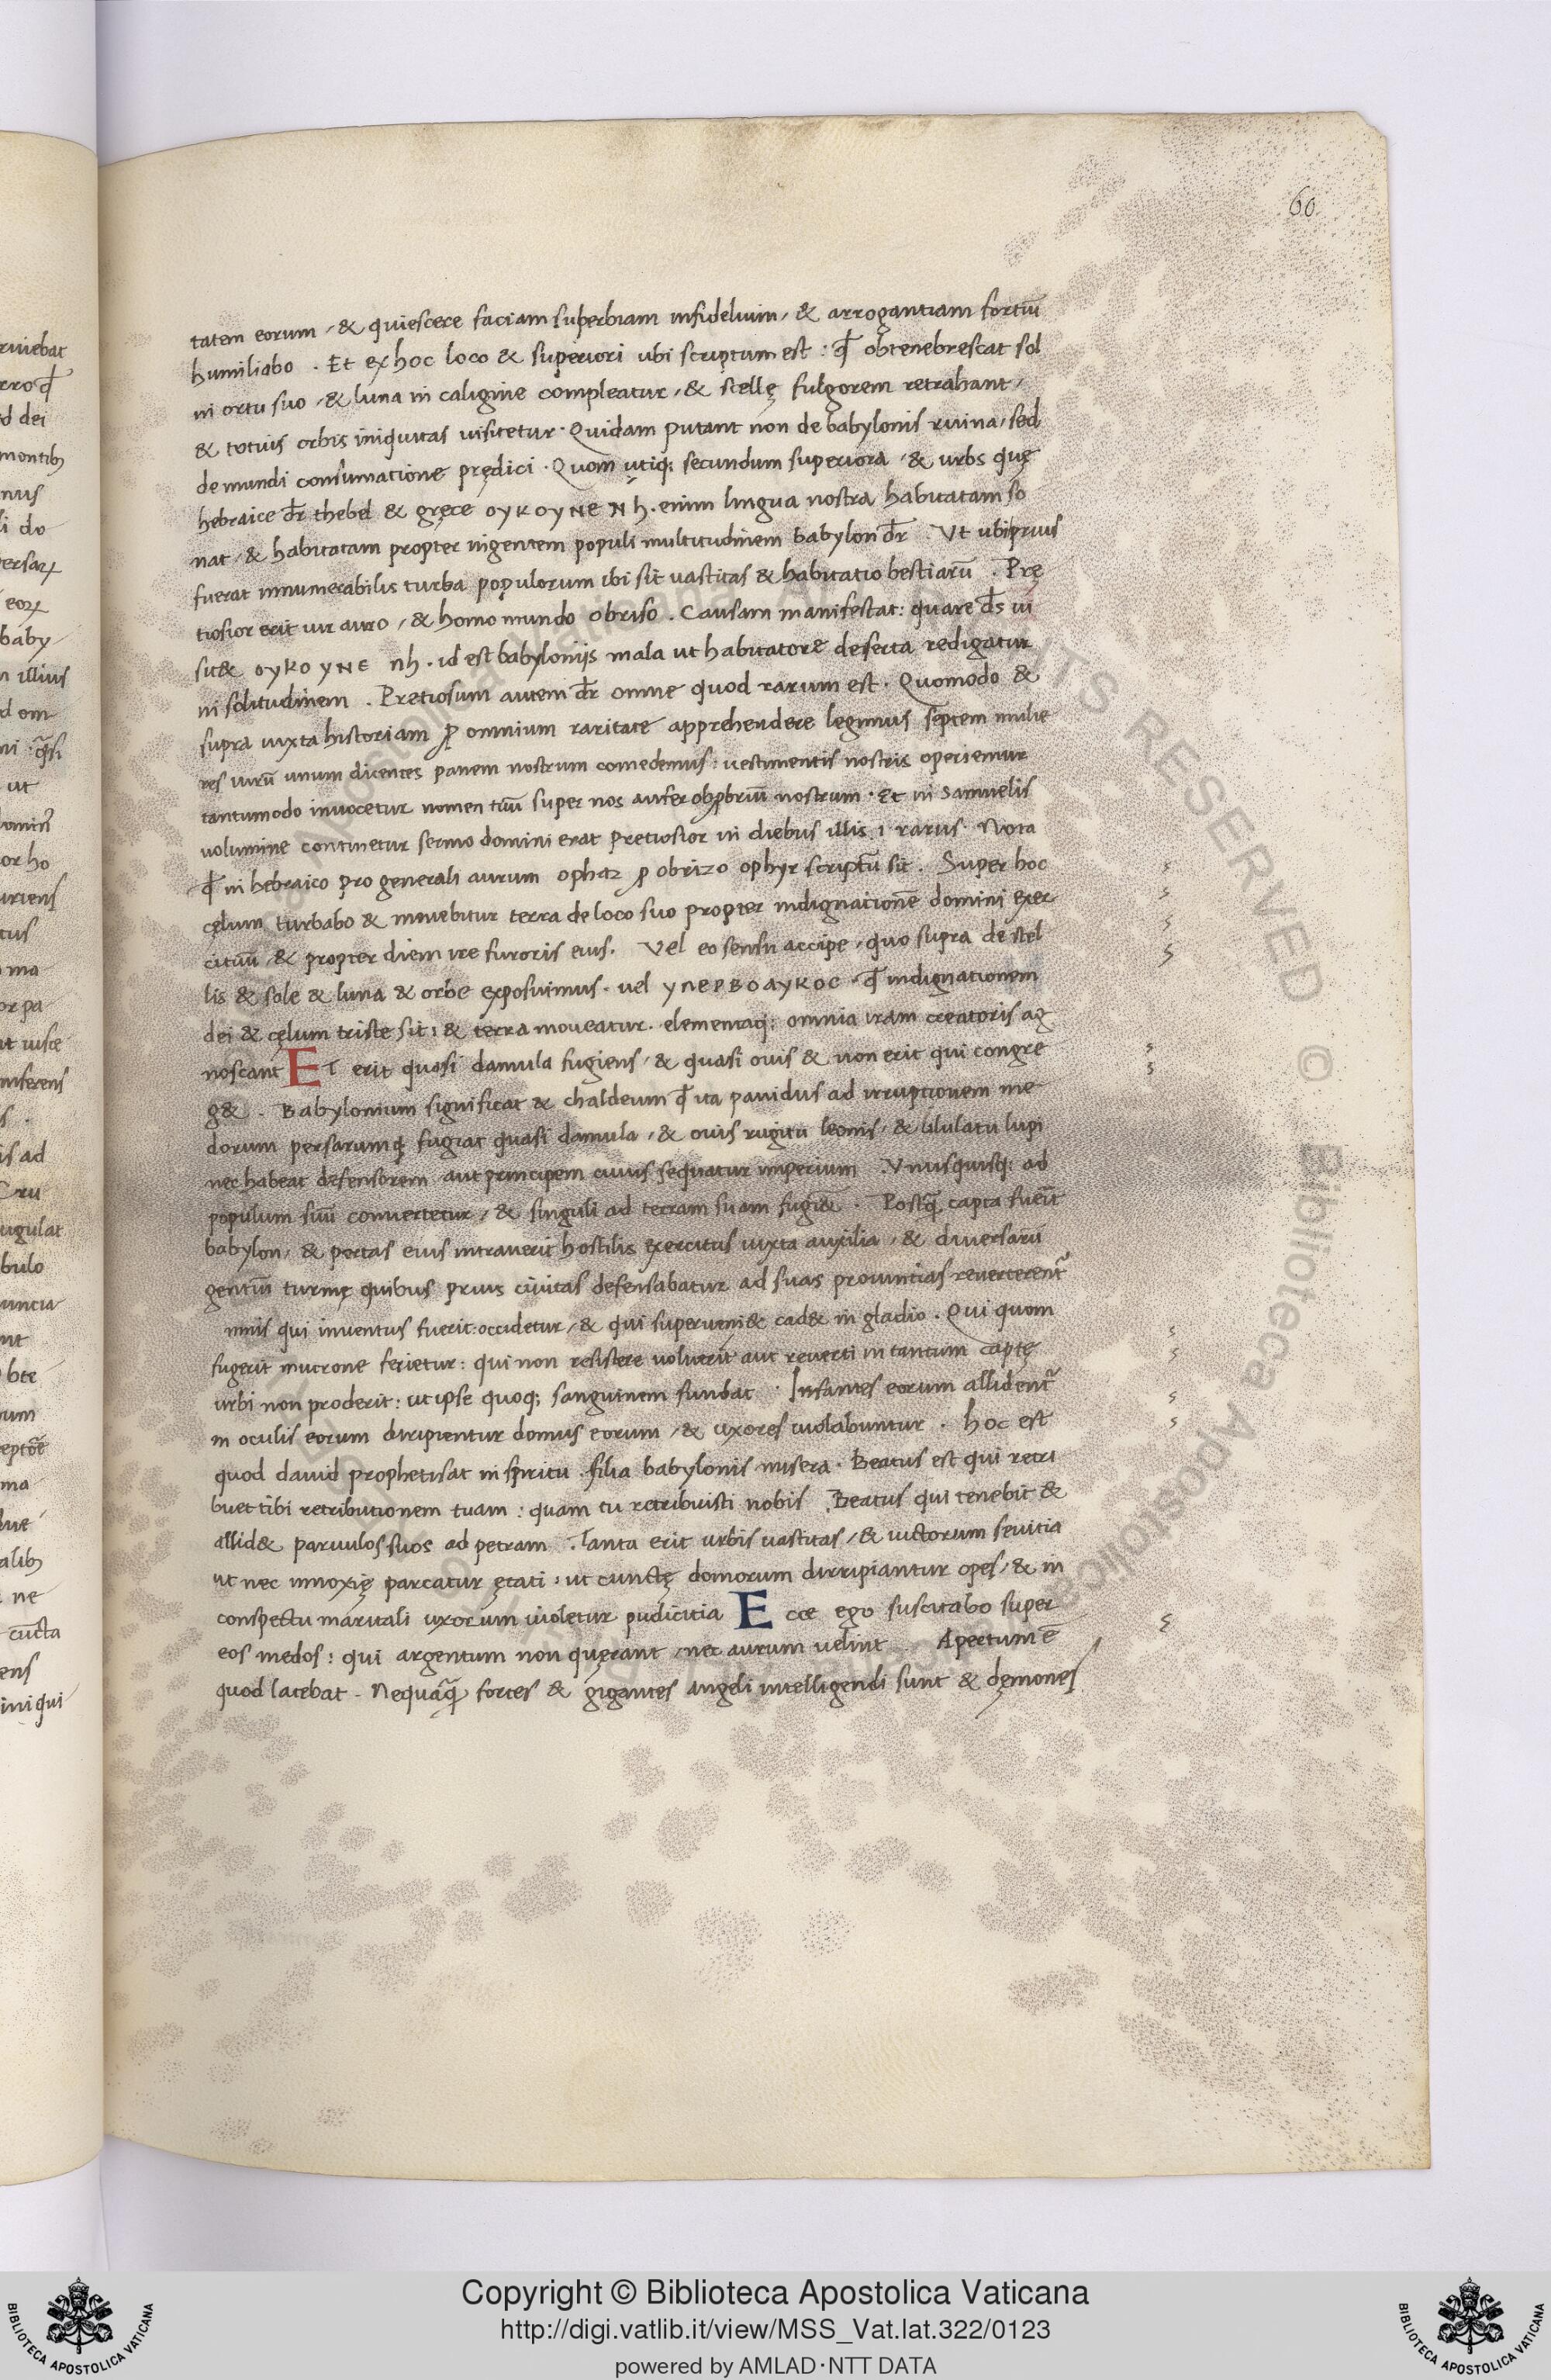 60
tatem eorum, & quiescere faciam superbiam infidelium, & arrogantiam fortiū
humiliabo. Et ex hoc loco & superiori ubi scriptum est: ꝙ obtenebrescat sol
in ortu suo, & luna in caligine compleatur, & stellę fulgorem retrahant,
& totius orbis iniquitas uisitetur. Quidam putant non de babylonis ruina, sed
de mundi consumatione prędici. Quom utiq; secundum superiora, & urbs quę
hebraice dr̄ thebel & gręce ΟΥΚΟΥΝΕ Νh. enim lingua nostra habitatam so
nat, & habitatam propter ingentem populi multitudinem babylon dr̄. Vt ubi prius
fuerat innumerabilis turba populorum ibi sit uastitas & habitatio bestiarū. Prę
tiosior erit uir auro, & homo mundo obriso. Causam manifestat: quare d̄s ui
sit& ΟΥΚΟΥΝΕ Νh. id est babyloniis mala ut habitatore deserta redigatur
in solitudinem. Pretiosum autem dr̄ omne quod rarum est. Quomodo &
supra iuxta historiam ꝓ omnium raritate apprehendere legimus septem mulie
res uirū unum dicentes panem nostrum comedemus: uestimentis nostris operiemur
tantumodo inuocetur nomen tuū super nos aufer obꝓbriū nostrum. Et in Samuelis
uolumine continetur sermo domini erat pretiosior in diebus illis .i. rarus. Nota
ꝙ in hebraico pro generali aurum ophaz ꝓ obrizo ophyr scriptū sit. Super hoc
cęlum turbabo & mouebitur terra de loco suo propter indignationē domini exer
cituū, & propter diem ire furoris eius. Vel eo sensu accipe, quo supra de stel
lis & sole & luna & orbe exposuimus. uel ΥΠΕΡΒΟΛΥΚΟC. ꝙ indignationem
dei & cęlum triste sit: & terra moueatur. elementaq; omnia iram creatoris ag
noscant ET erit quasi damula fugiens, & quasi ouis & non erit qui congre
g&. Babylonium significat & chaldeum ꝙ ita pauidus ad irruptionem me
dorum persarumq; fugiat quasi damula, & ouis rugitu leonis, & ululatu lupi
nec habeat defensorem aut principem cuius sequatur imperium. Vnusquisq; ad
populum suū conuertetur, & singuli ad terram suam fugi&. Postq̄ capta fuerit
babylon, & portas eius intrauerit hostilis exercitus iuxta auxilia, & diuersarū
gentiū turmę quibus prius ciuitas defensabatur ad suas prouintias reuerterent᷑
mnis qui inuentus fuerit: occidetur, & qui superueni& cad& in gladio. Qui quom
fugerit mucrone ferietur: qui non resistere uoluerit aut reuerti in tantum captę
urbi non proderit: ut ipse quoq; sanguinem fundat. Infantes eorum allident᷑
in oculis eorum diripientur domus eorum, & uxores uiolabuntur. hoc est
quod dauid prophetisat in spiritu. filia babylonis misera. Beatus est qui retri
buet tibi retributionem tuam: quam tu retribuisti nobis. Beatus qui tenebit &
allid& paruulos suos ad petram. Tanta erit urbis uastitas, & uictorum seuitia
ut nec innoxię parcatur ętati: ut cunctę domorum dirripiantur opes, & in
conspectu maritali uxorum uioletur pudicitia Ecce ego suscitabo super
eos medos: qui argentum non quęrant, nec aurum uelint. Apertum ē
quod latebat. Nequaq̄ fortes & gigantes angeli intelligendi sunt & dęmones
Copyright © Biblioteca Apostolica Vaticana
http://digi.vatlib.it/view/MSS_Vat.lat.322/0123
powered by AMLAD·NTT DATA
BIBLIOTECA APOSTOLICA VATICANA
BIBLIOTECA APOSTOLICA VATICANA